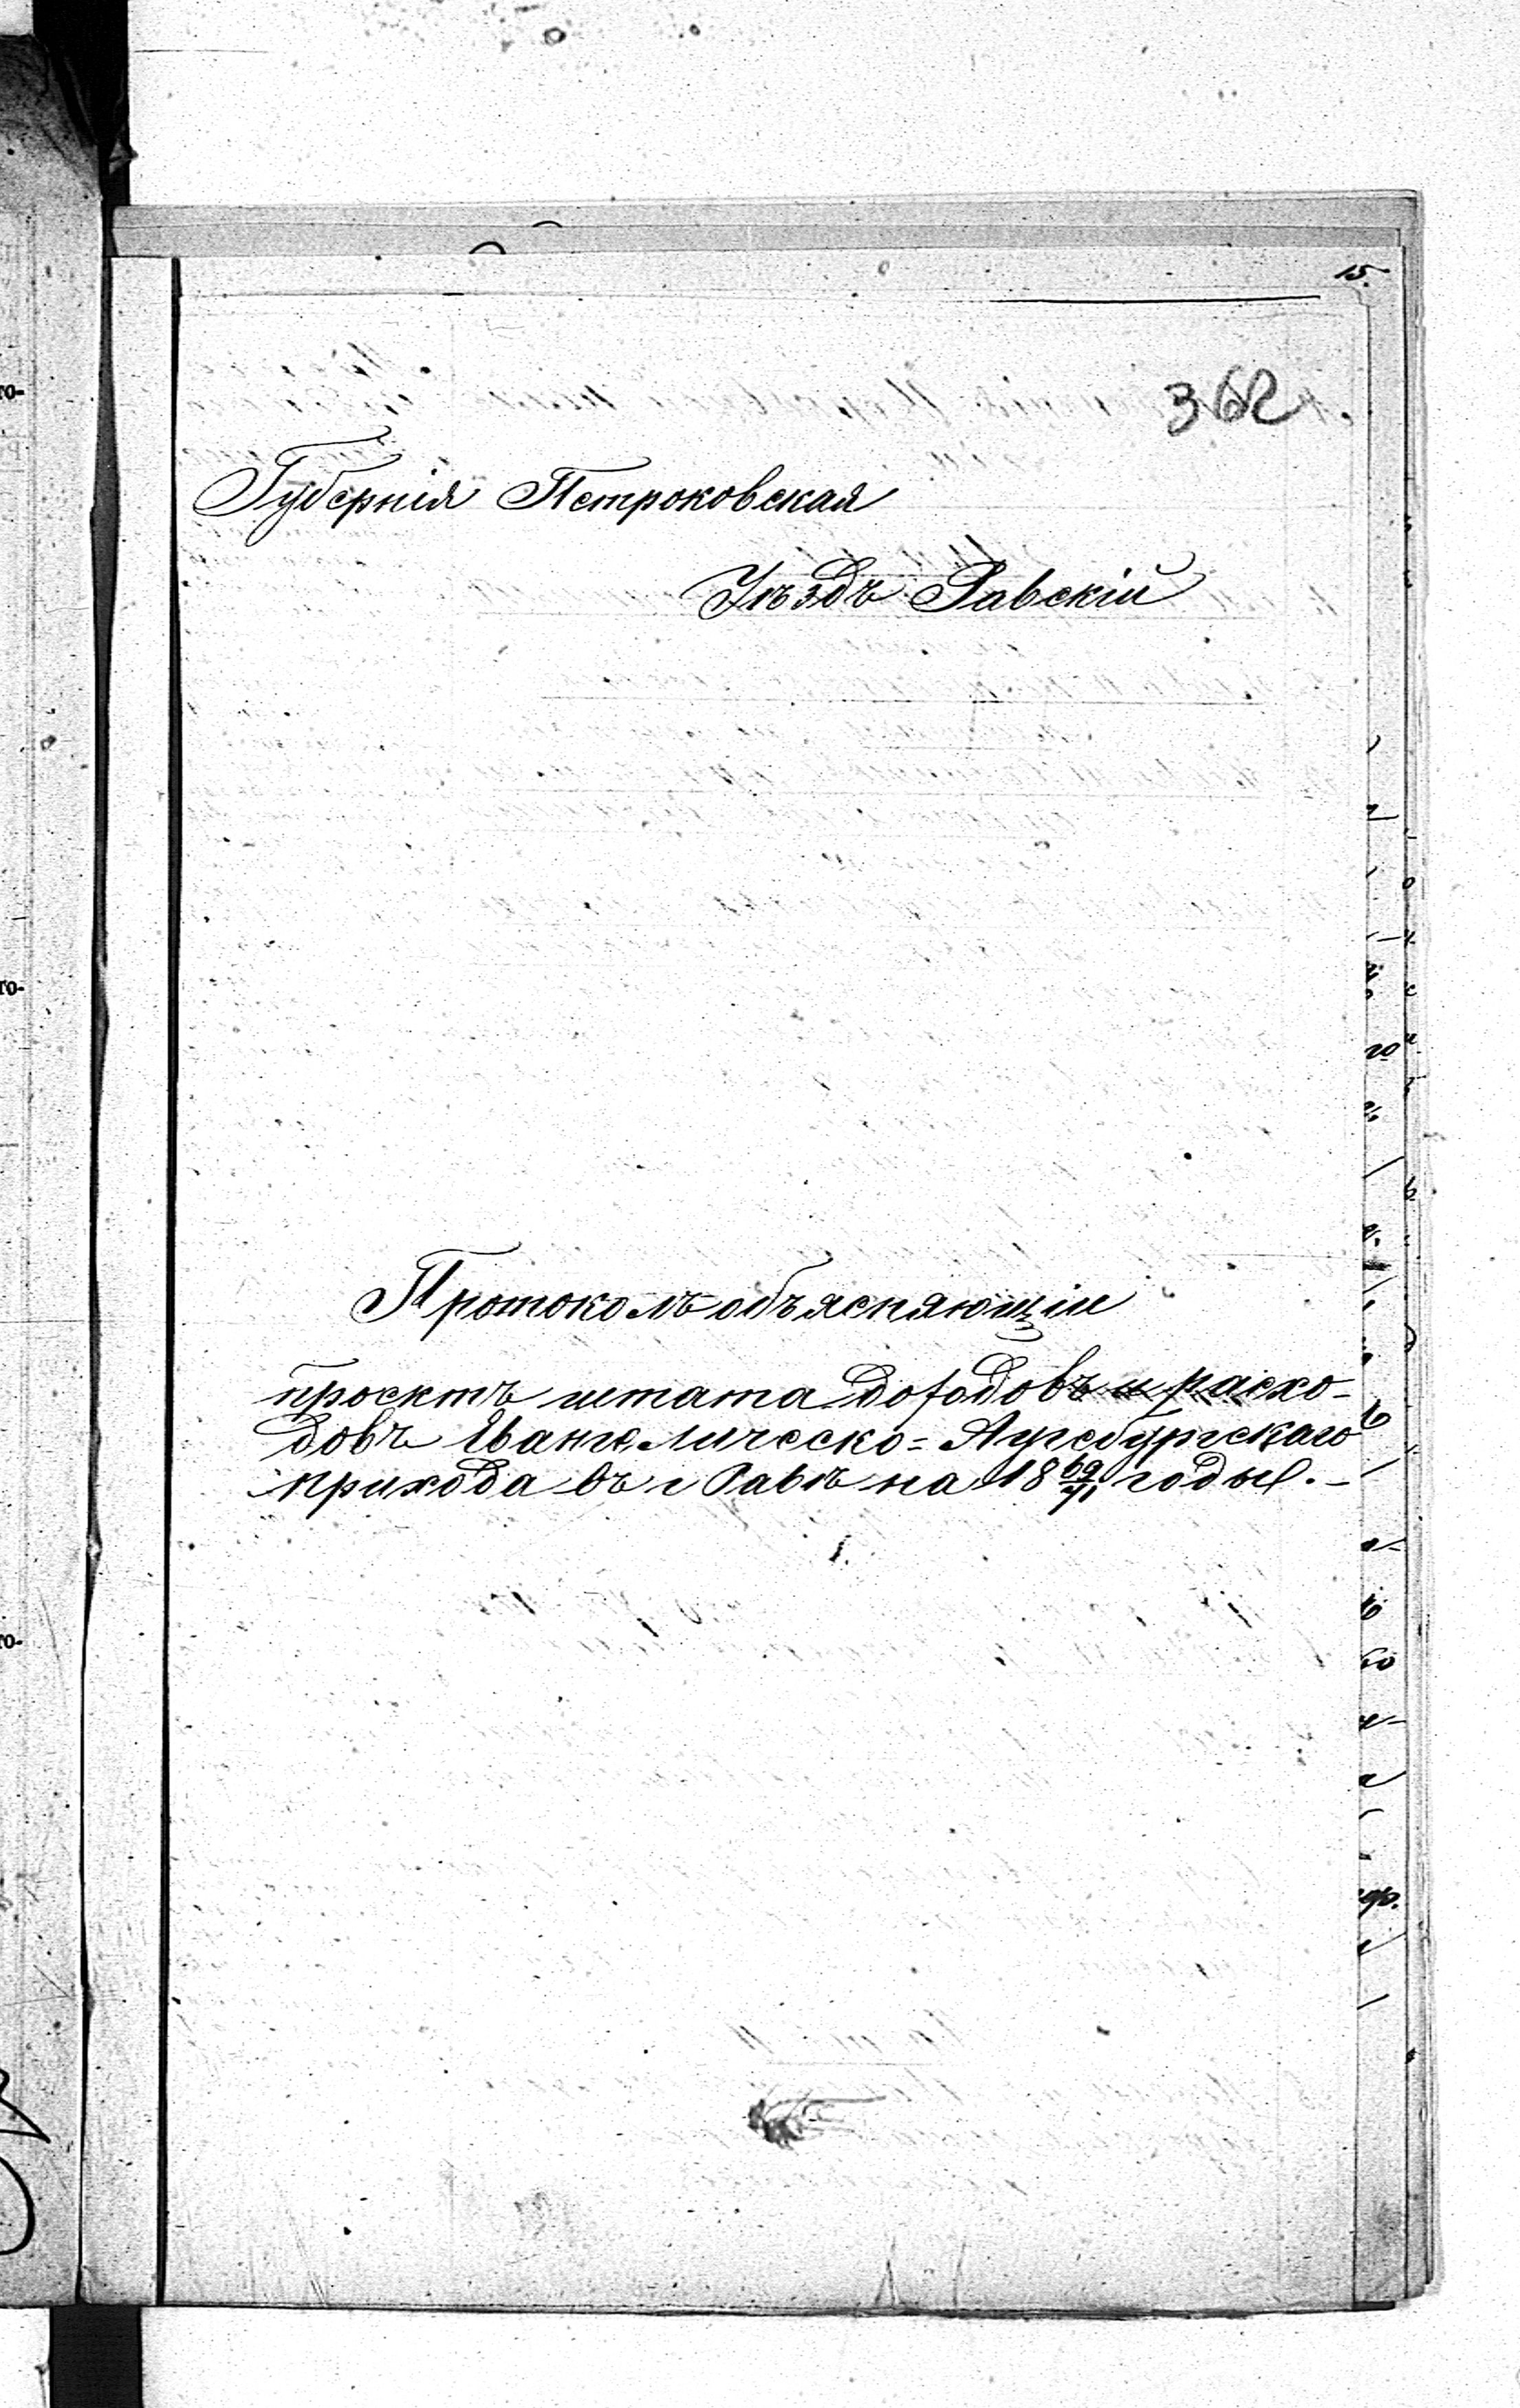 15.
362
Губернія Петроковская
Уѣздъ Равскій
Протоколъ объясняющій
проектъ штата доходовъ и расхо-
довъ Евангелическо=Аугсбургскаго
прихода въ г Равѣ на 18 69/71 годы.-